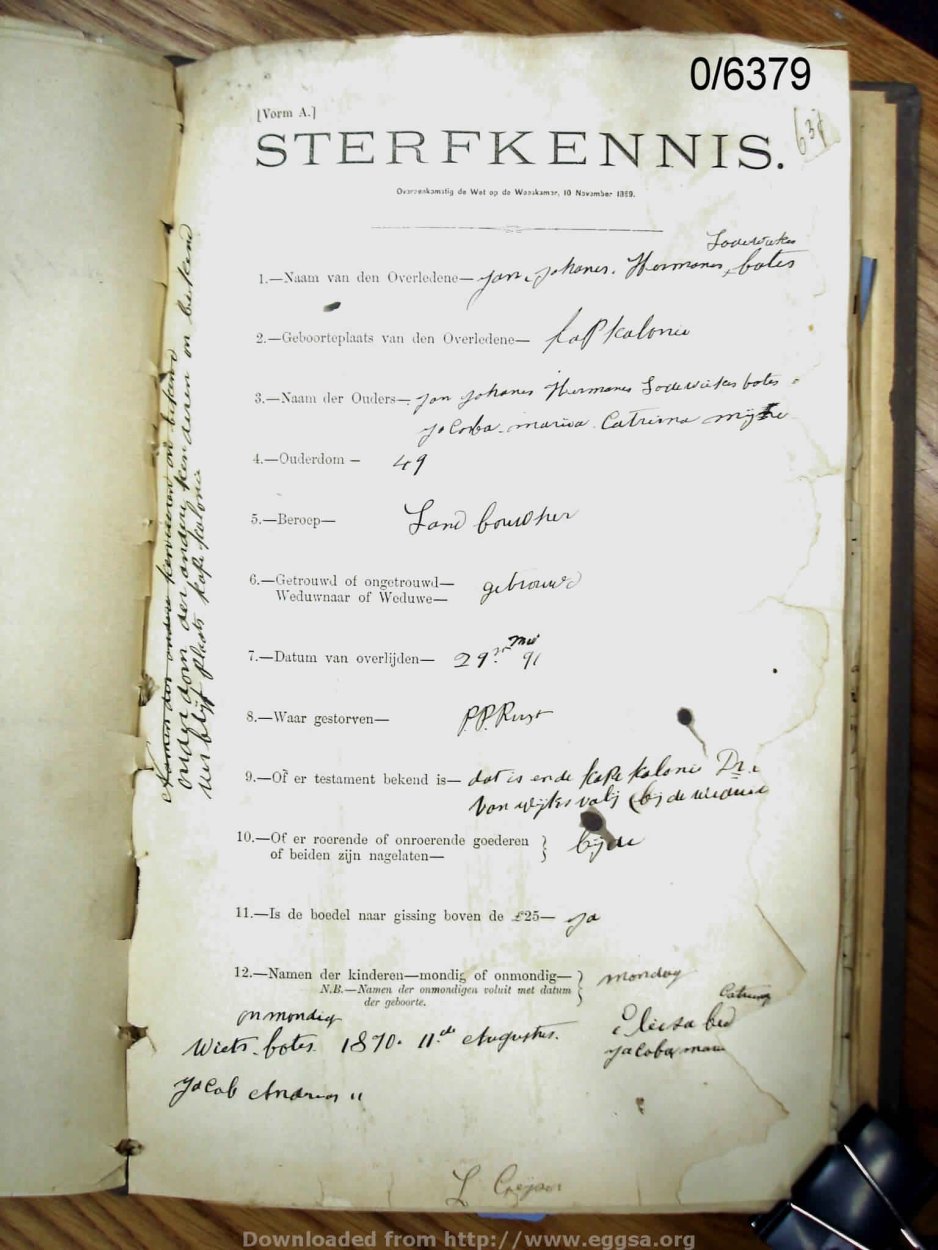 0/6379
[Vorm A.]
STERFKENNIS.
Overeenkomstig de Wet op de Weeskamer, 10 November 1869.
Lodewikes
1.—Naam van den Overledene— Jan Johanes. Hermanes, botes
2.—Geboorteplaats van den Overledene— kaP kalonie
3.—Naam der Ouders— Jan Johanes Hermanes Lodewickes botes
Jacoba mariea Catriena
4.—Ouderdom — 49
5.—Beroep— Land bouwher
6.—Getrouwd of ongetrouwd— getrouwd
Weduwnaar of Weduwe—
Mei
7.—Datum van overlijden— 29 91
8.—Waar gestorven— P.P. Rust
9.—Of er testament bekend is— dat is en de kape kalonie
Van wijks valij bij de wedue
10.—Of er roerende of onroerende goederen } bijde
of beiden zijn nagelaten—
11.—Is de boedel naar gissing boven de £25— Ja
12.—Namen der kinderen—mondig of onmondig— } mondag
N.B.—Namen der onmondigen voluit met datum
der geboorte.
Catriena
onmondig
Eliesa bed
Wiets botes 1870. 11de Augustus.
Jacoba maria
Jacob Andries "
namen der andere kenderen on bekend
ouderdom der andere kenderen on bekend
verblijf plaats kape kalonie
L
Downloaded from http://www.eggsa.org